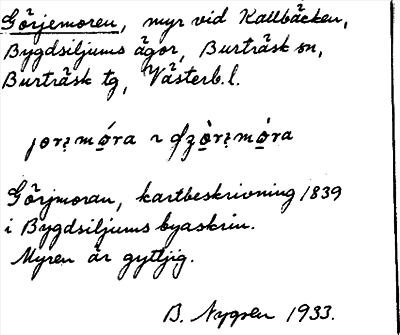 Görjemoren, myr vid Kallbäcken,
Bygdsiljums ägor, Burträsk sn,
Burträsk tg, Västerb. l.
Görjmoran, kartbeskrivning 1839
i Bygdsiljums byaskrin.
Myren är gyttjig.
B. Nygren 1933.